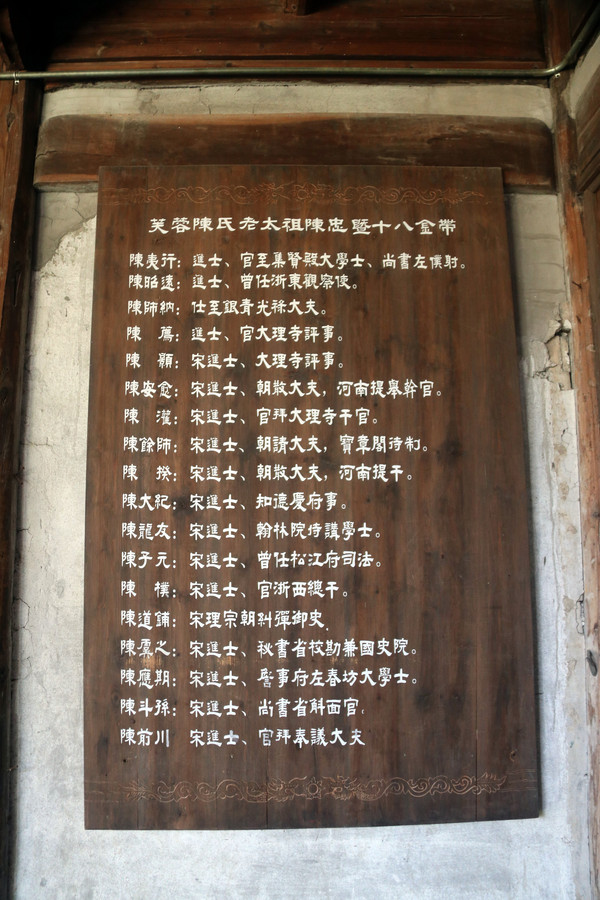 芙蓉陳氏老太祖陳忠暨十八金帶
陳夷行：進士、官至集賢殿大學士、尚書左僕射。
陳昭遠：進士、曾任浙東觀察使。
陳師納：仕至銀青光祿大夫。
陳　薦：進士、官大理寺評事。
陳　顥：宋進士、大理寺評事。
陳安愈：宋進士、朝散大夫，河南提舉幹官。
陳　灌：宋進士、官拜大理寺干官。
陳餘師：宋進士、朝請大夫，寶章閣待制。
陳　揆：宋進士、朝散大夫，河南提干。
陳大紀：宋進士、知德慶府事。
陳龍友：宋進士、翰林院侍講學士。
陳子元：宋進士、曾任松江府司法。
陳　樸：宋進士、官浙西總干。
陳道鋪：宋理宗朝糾彈御史．
陳　之：宋進士、秋書省校勘兼國史院。
陳應期：宋進士、詹事府左春坊大學士。
陳斗孫：宋進士、尚書省斛面官．
陳前川　宋進士、官拜奉議大夫